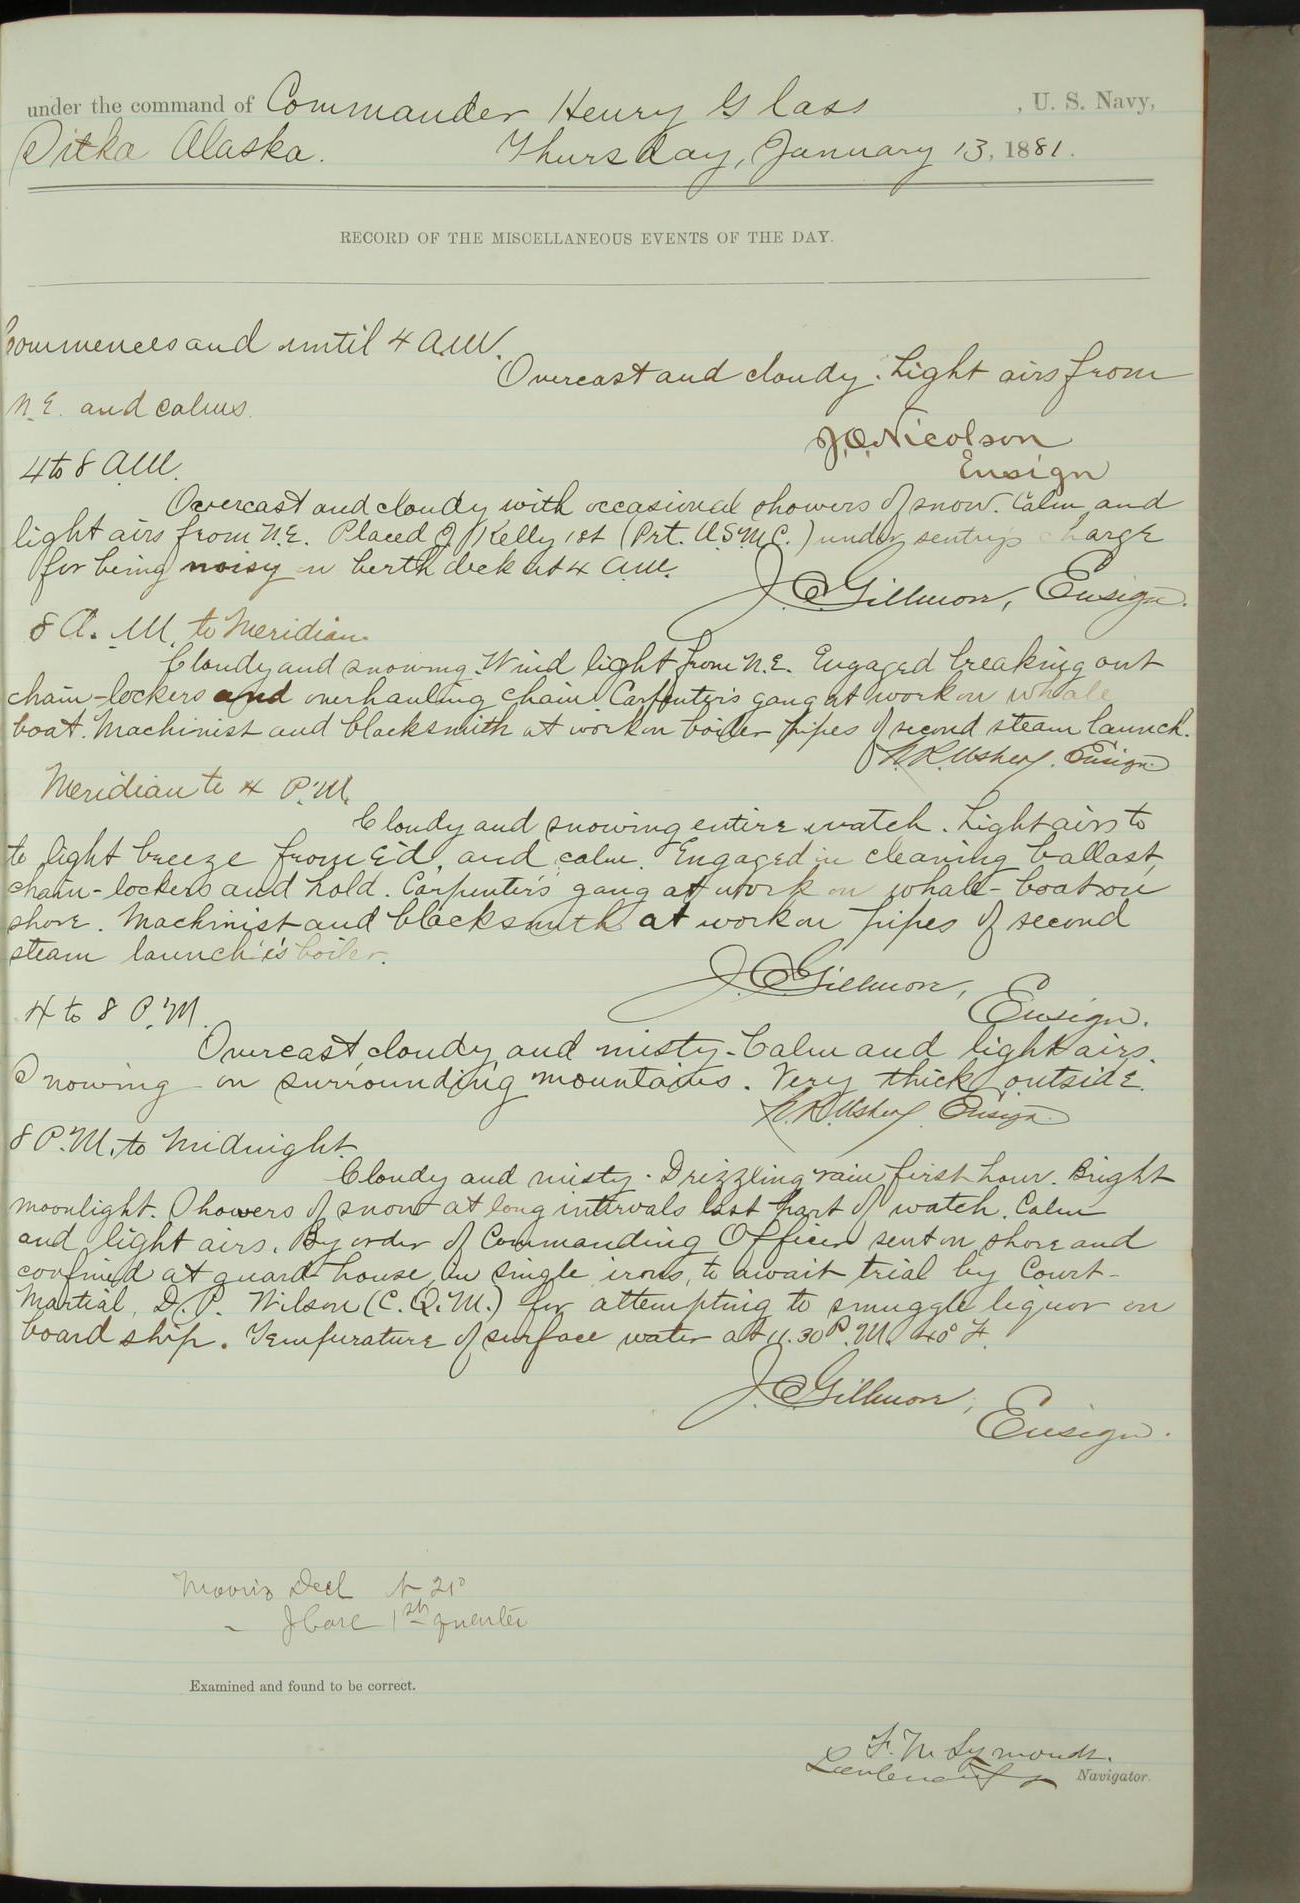 under the command of Commander Henry Glass, U. S. Navy,
Sitka Alaska. Thursday, January 13, 1881.
RECORD OF THE MISCELLANEOUS EVENTS OF THE DAY.
Commences and until 4 A.M.
Overcast and cloudy. Light airs from
N.E. and calms.
J.O. Nicolson
Ensign
4 to 8 A.M.
Overcast and cloudy with occasional showers of snow. Calm and
light airs from N.E. Placed J. Kelly 1st (Prt. U.S.M.C.) under sentry's charge
for being noisy on berth deck at 4 A.M.
J.C. Gillmore, Ensign.
8 A.M. to Meridian.
Cloudy and snowing. Wind light from N.E. Engaged breaking out
chain-lockers and overhauling chain. Carpenter's gang at work on whale
boat. Machinist and blacksmith at work on boiler pipes of second steam launch.
N.R. Usher, Ensign.
Meridian to 4 P.M.
Cloudy and snowing entire watch. Light airs to
to light breeze from E'd, and calm. Engaged in cleaning ballast,
chain-lockers and hold. Carpenter's gang at work on whale-boat on
shore. Machinist and blacksmith at work on pipes of second
steam launch's boiler.
J.C. Gillmore,
Ensign.
4 to 8 P.M.
Overcast cloudy and misty. Calm and light airs.
Snowing on surrounding mountains. Very thick outside.
N.R. Usher, Ensign
8 P.M. to Midnight.
Cloudy and misty. Drizzling rain first hour. Bright
moonlight. Showers of snow at long intervals last part of watch. Calm
and light airs. By order of Commanding Officer sent on shore and
confined at guard-house, in single irons, to await trial by Court-
Martial, D.P. Wilson (C.Q.M.) for attempting to smuggle liquor on
board ship. Temperature of surface water at 11.30 P.M. 40° F.
J.C. Gillmore,
Ensign.
Moon's Decl N 21°
" 1st quarter
Examined and found to be correct.
F. M. Symonds.
Lieutenant & Navigator.